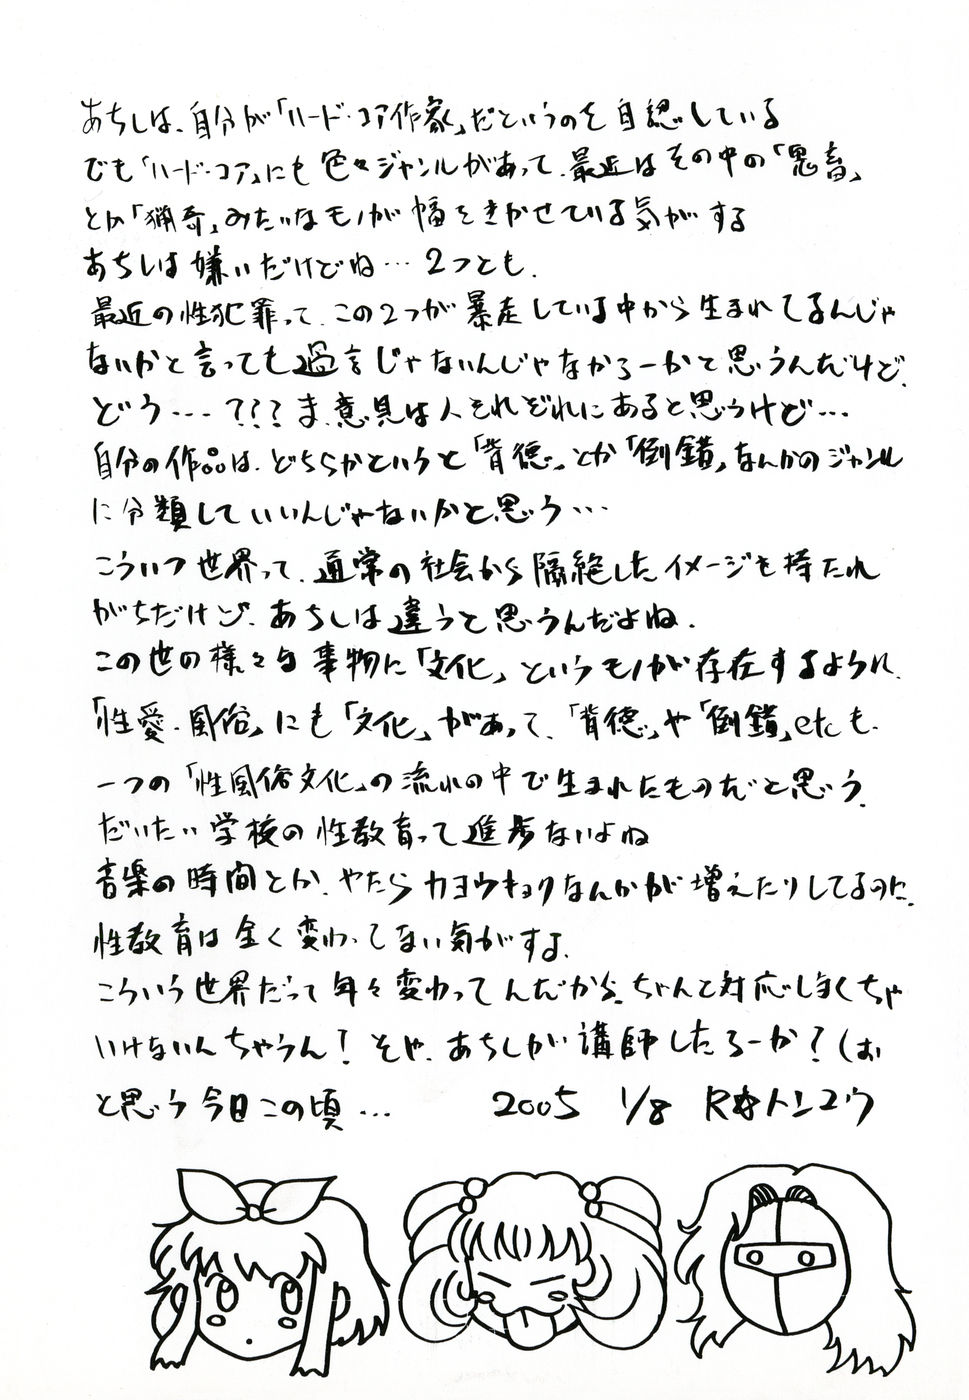 あちしは、自分が「ハード・コア作家」だというのを自認している
でも「ハード・コア」にも色々ジャンルがあって、最近はその中の「鬼畜」
とか「猟奇」みたいなモノが幅をきかせている気がする
あちしは嫌いだけどね…2つとも、
最近の性犯罪って、この2つが暴走している中から生まれてるんじゃ
ないかと言っても過言じゃないんじゃなかろーかと思うんだけど、
どう…???ま、意見は人それぞれにあると思うけど…
自分の作品は、どちらかというと「背徳」とか「倒錯」なんかのジャンル
に分類していいんじゃないかと思う…
こういう世界って、通常の社会から隔絶したイメージを持たれ
がちだけど、あちしは違うと思うんだよね、
この世の様々な事物に「文化」というモノが存在するように、
「性愛・風俗」にも「文化」があって、「背徳」や「倒錯」etcも、
一つの「性風俗文化」の流れの中で生まれたものだと思う、
だいたい学校の性教育って進歩ないよね
音楽の時間とか、やたらカヨウキョクなんかが増えたりしてるのに、
性教育は全く変わってない気がする、
こういう世界だって年々変わってんだから、ちゃんと対応しまくちゃ
いけないんちゃうん!そや、あちしが講師したろーか?(お
と思う今日この頃… 2005 1/8